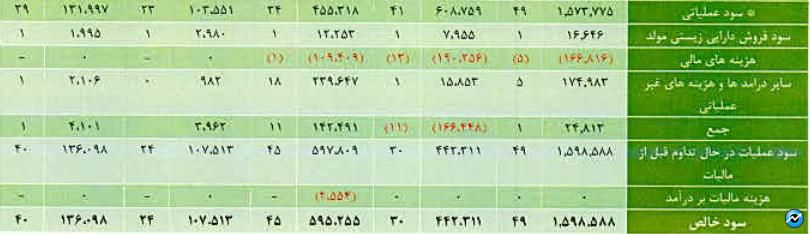 * سود عملیاتی ۱,۵۷۳,۷۷۵ ۴۹ ۶۰۸,۷۵۹ ۴۱ ۴۵۵,۳۱۸ ۳۴ ۱۰۳,۵۵۱ ۲۳ ۱۳۱,۹۹۷ ۳۹
سود فروش دارایی زیستی مولد ۱۶,۶۴۶ ۱ ۷,۹۵۵ ۱ ۱۲,۲۵۳ ۱ ۲,۹۸۰ ۱ ۱,۹۹۵ ۱
هزینه های مالی (۱۶۶,۸۱۶) (۵) (۱۹۰,۲۵۶) (۱۳) (۱۰۹,۴۰۹) (۱) ۰ - ۰ -
سایر درامد ها و هزینه های غیر ۱۷۴,۹۸۳ ۵ ۱۵,۸۵۳ ۱ ۲۳۹,۶۴۷ ۱۸ ۹۸۲ ۰ ۲,۱۰۶ ۱
عملیاتی
جمع ۲۴,۸۱۳ ۱ (۱۶۶,۴۴۸) (۱۱) ۱۴۲,۴۹۱ ۱۱ ۳,۹۶۲ ۴,۱۰۱ ۱
سود عملیات در حال تداوم قبل از ۱,۵۹۸,۵۸۸ ۴۹ ۴۴۲,۳۱۱ ۳۰ ۵۹۷,۸۰۹ ۴۵ ۱۰۷,۵۱۳ ۲۴ ۱۳۶,۰۹۸ ۴۰
مالیات
هزینه مالیات بر درآمد ۰ ۰ ۰ ۰ (۲,۵۵۴) - ۰ - ۰ -
سود خالص ۱,۵۹۸,۵۸۸ ۴۹ ۴۴۲,۳۱۱ ۳۰ ۵۹۵,۲۵۵ ۴۵ ۱۰۷,۵۱۳ ۲۴ ۱۳۶,۰۹۸ ۴۰